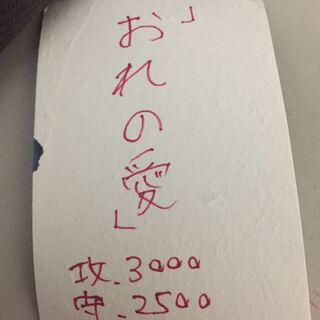 「おれの愛」
攻.3000
守.2500